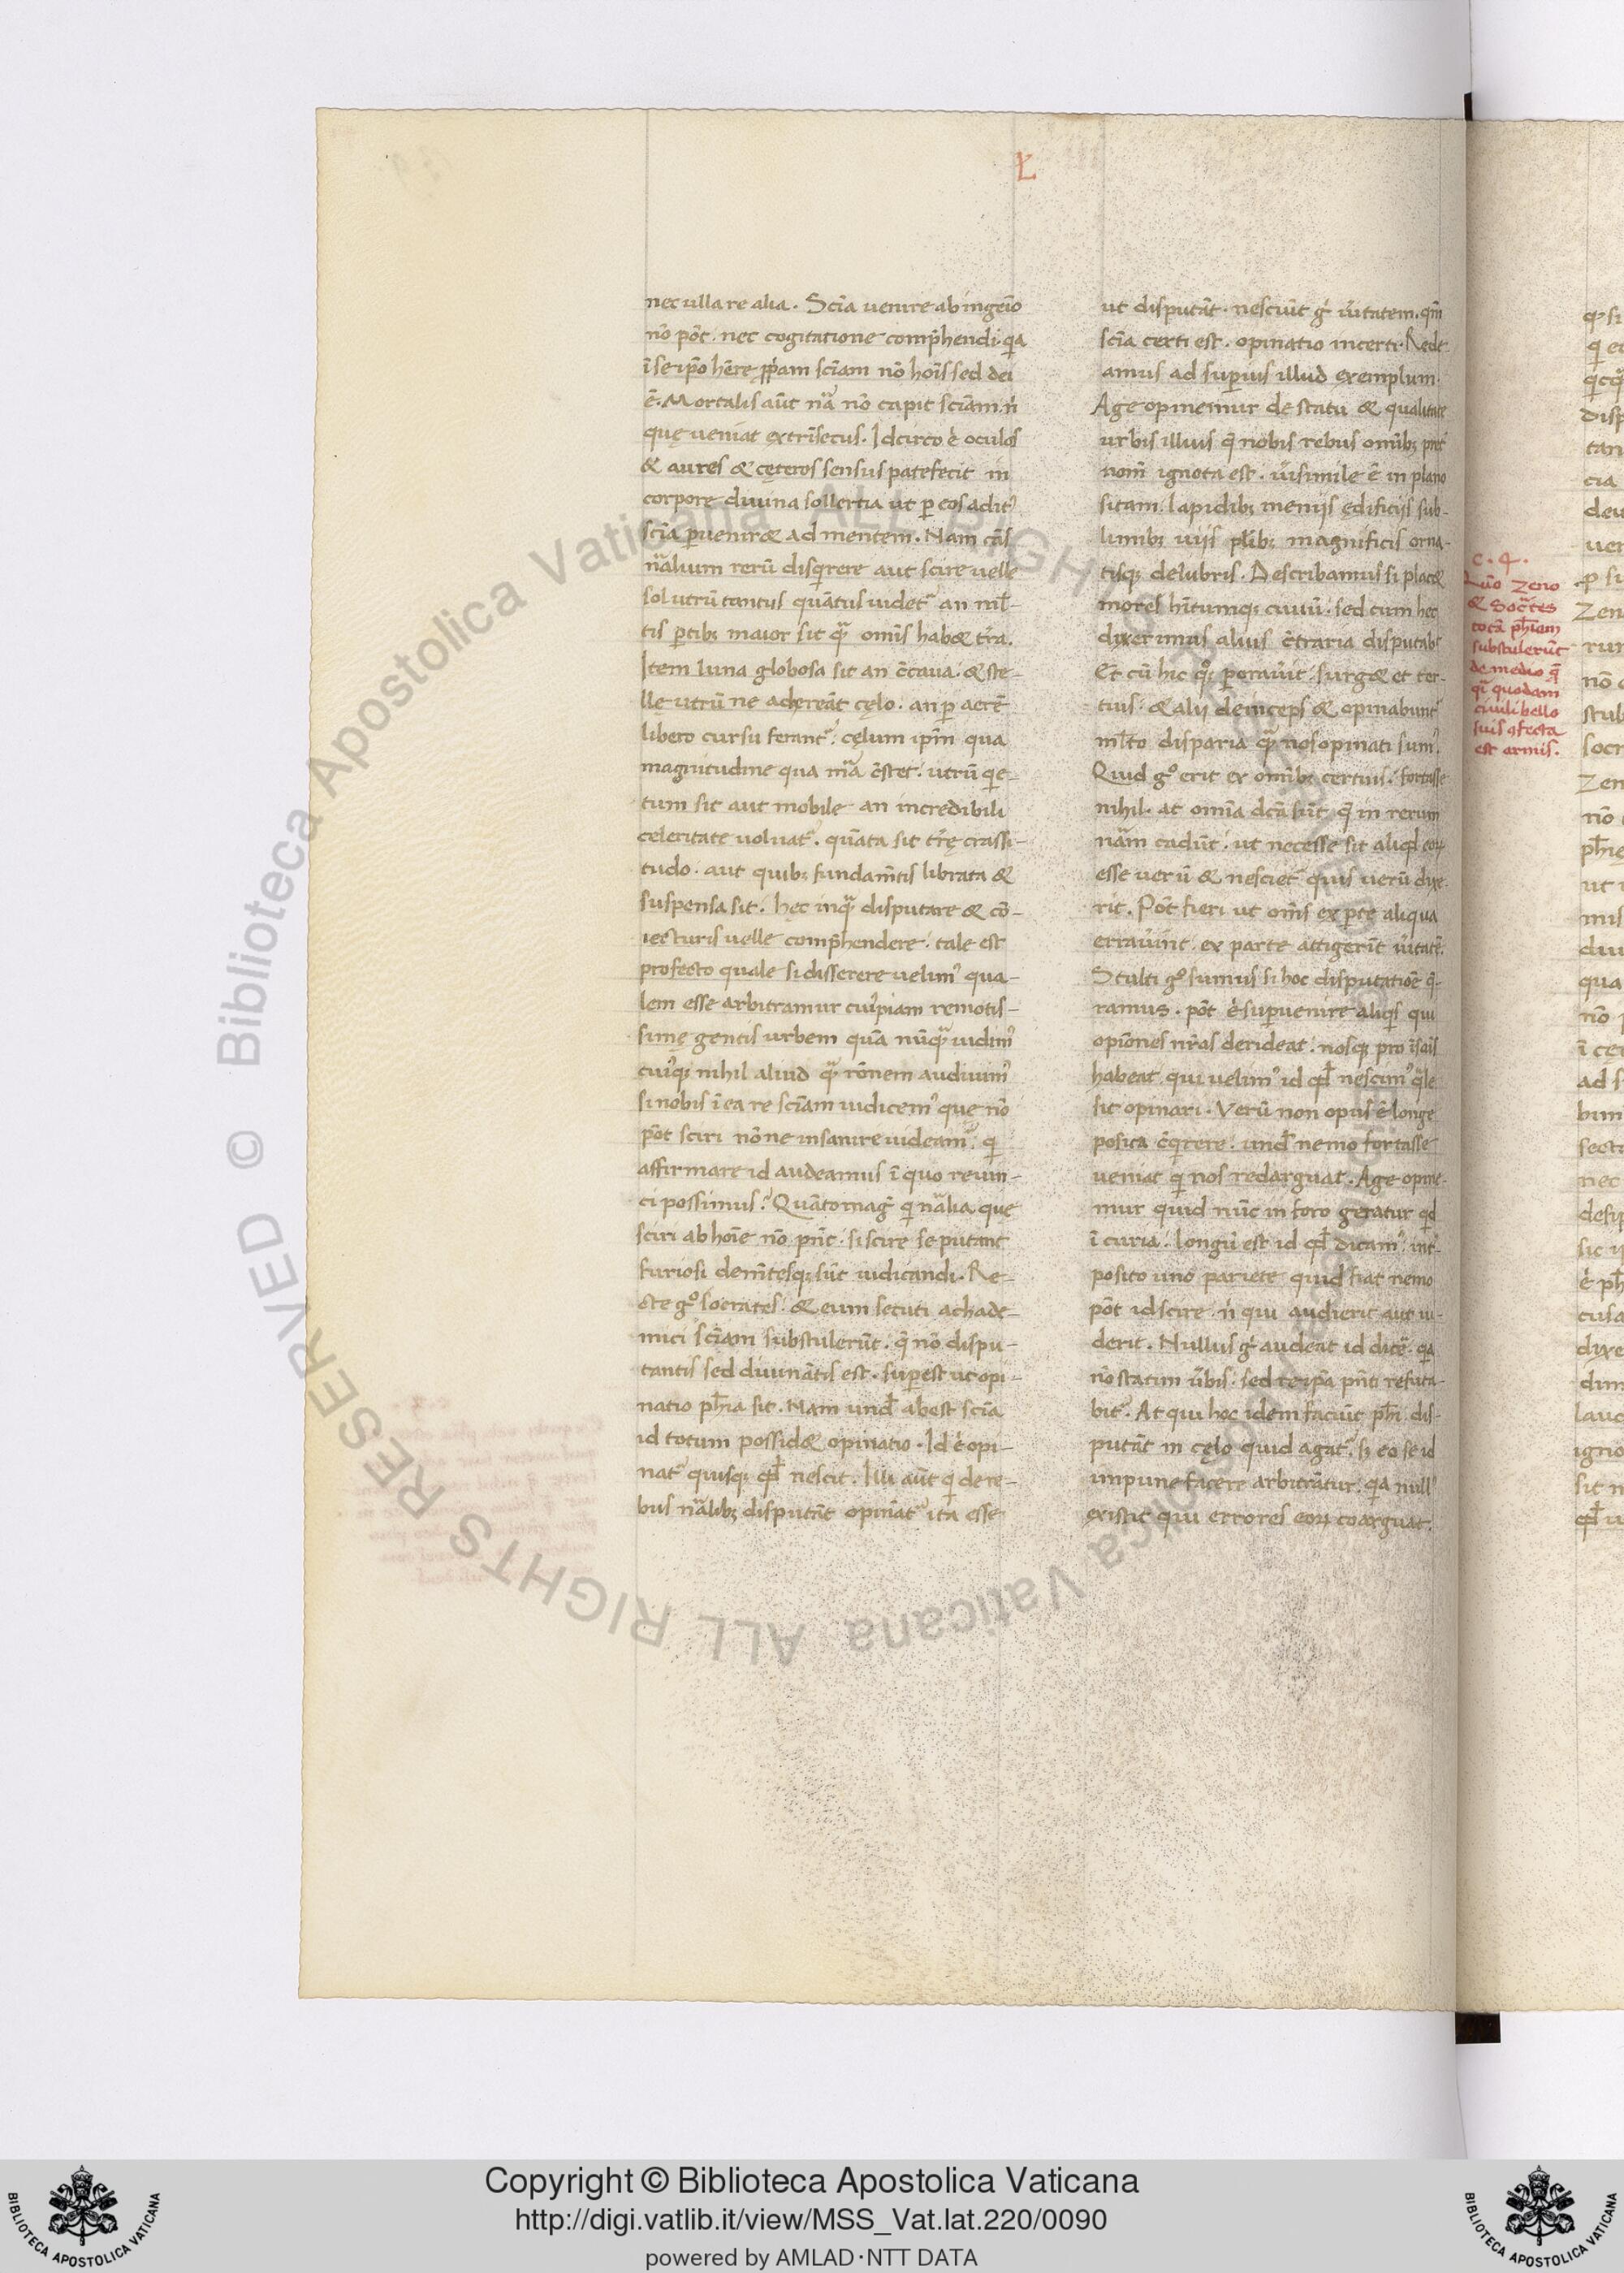 Ł
nec ulla re alia. Scīa venire ab ingeīo
nō pōt. nec cogitatione comp̄hendi. qa
ī se ip̄o hēre pp̄am scīam nō hoīs sed dei
ē. Mortalis aūt nā nō capit scīam. nͥ
quę veniat extrīsecus. Idcirco ē oculos
& aures & cęteros sensus patefecit in
corpore diuina sollertia ut p̱ eos aditꝰ
scīa p̱venir& ad mentem. Nam cās
nālium rerū disqͥrere aut scire velle
sol utrū tantus quātus uidet᷑ an ml̄-
tis p̱tibꝫ maior sit qᷓ omīs hab& tr̄a.
Item luna globosa sit an c̄caua. & ste-
llę utrū ne adhereāt cęlo. an p̱ aerē
libero cursu ferant᷑. cęlum ip̄m qua
magnitudine qua mā c̄stet. utrū qͥe-
tum sit aut mobile an incredibili
celeritate voluat᷑. quāta sit tr̄ę crassi-
tudo. aut quibꝫ fundam̄tis librata &
suspensa sit. hęc inqᷓ disputare & cō-
iecturis uelle comp̄hendere. tale est
profecto quale si disserere uelimꝰ qua-
lem esse arbitramur cuiͥpiam remotis-
simę gentis urbem quā nūqᷓ uidimꝰ
cuiͥqꝫ nihil aliud qᷓ nōmen audiuimꝰ
si nobis ī ea re scīam uidicemꝰ que nō
pōt sciri nōne insanire uideam᷑. qͥ
affirmare id audeamus ī quo reuin-
ci possimus? Quāto magͥ qͥ nālia quę
sciri ab hoīe nō pn̄t. si scire se putant
furiosi dem̄tesqꝫ sūt iudicandi. Re-
cte gͦ socrates. & eum secuti achade-
mici scīam substulerūt. q̄ nō dispu-
tantis sed diuinātis est. sup̱est ut opi-
natio ph̄ia sit. Nam und̄ abest scīa
id totum possid& opinatio. Id ē opi-
nat᷑ quisqꝫ qd̄ nescit. Illi aūt qͥ de re-
bus nālibꝫ disputāt opināt᷑ ita esse
ut disputāt. nesciūt gͥ ūitatem. qm̄
scīa certi est. opinatio incerti. Rede-
amus ad sup̱ius illud exemplum.
Age opinemur de statu & qualitate
urbis illius q̄ nobis rebus omībꝫ p̱tēr
nom̄ ignota est. ūisimile ē in plano
sitam. lapidibꝫ meniis ędificiis sub-
limibꝫ uiis pl̄ibꝫ magnificis orna-
tisqꝫ delubris. Describamus si plac&
mores h̄itumqꝫ ciuiū. sed cum hec
dixerimus alius c̄traria disputabit
Et cū hic qͦqꝫ p̱orauīt. surg& et ter-
tius. & alii deinceps & opinabunt᷑
ml̄to disparia qᷓ nos opinati sumꝰ.
Quid gͦ erit ex omībꝫ certius. fortasse
nihil. at omīa dc̄a sūt. q̄ in rerum
nām cadūt. ut necesse sit aliqd̄ eoꝝ
esse verū & nesciet᷑ quis verū dixe-
rit. Pōt fieri ut omīs ex p̱te aliqua
errauīnt. ex parte attigerīt ūitatē.
Stulti gͦ sumus si hoc disputatiōe q̄-
ramus. pōt ē sup̱uenire aliqͥs qui
opiōnes nr̄as derideat. nosqꝫ pro īsāis
habeat qui velimꝰ id qd̄ nescimꝰ qᷓle
sit opinari. Verū non opus ē longe
posita c̄qͥrere. und̄ nemo fortasse
veniat qͥ nos redarguat. Age opine-
mur quid nūc in foro geratur qd̄
ī curia. longū est id qd̄ dicamꝰ. inͭ-
posito uno pariete quid fiat nemo
pōt id scire. nͥ qui audierit aut ui-
derit. Nullus gͥ audeat id dicē. qa
nō statim ūbis. sed re ip̄a pn̄ti refuta-
bit᷑. At qui hoc idem faciūt ph̄i. dis-
putāt in cęlo quid agat᷑. sꝫ eo se id
impune facere arbitrātur. qa nullꝰ
existit qui errores eoꝝ coarguat.
c. 4.
Quō Zeno
& Soc̄tes
totā ph̄iam
substulerūt
de medio q̄
qͥ quodam
ciuili bello
suis 9fecta
est armis.
Copyright © Biblioteca Apostolica Vaticana
http://digi.vatlib.it/view/MSS_Vat.lat.220/0090
powered by AMLAD·NTT DATA
© Biblioteca Apostolica Vaticana ALL RIGHTS RESERVED
BIBLIOTECA APOSTOLICA VATICANA
BIBLIOTECA APOSTOLICA VATICANA